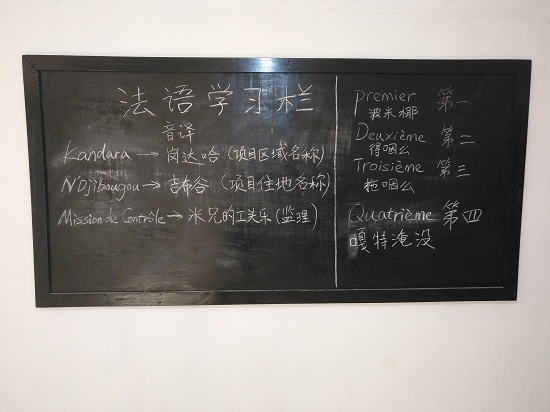 法语学习栏
音译
Kandara → 岗达哈 (项目区域名称)
N'Djibougou → 吉布谷 (项目住地名称)
Mission de Contrôle → 米兄的工关乐 (监理)
premier 第一
波米椰
Deuxième 第二
得咽么
Troisième 第三
拖咽么
Quatrième 第四
嘎特淹没